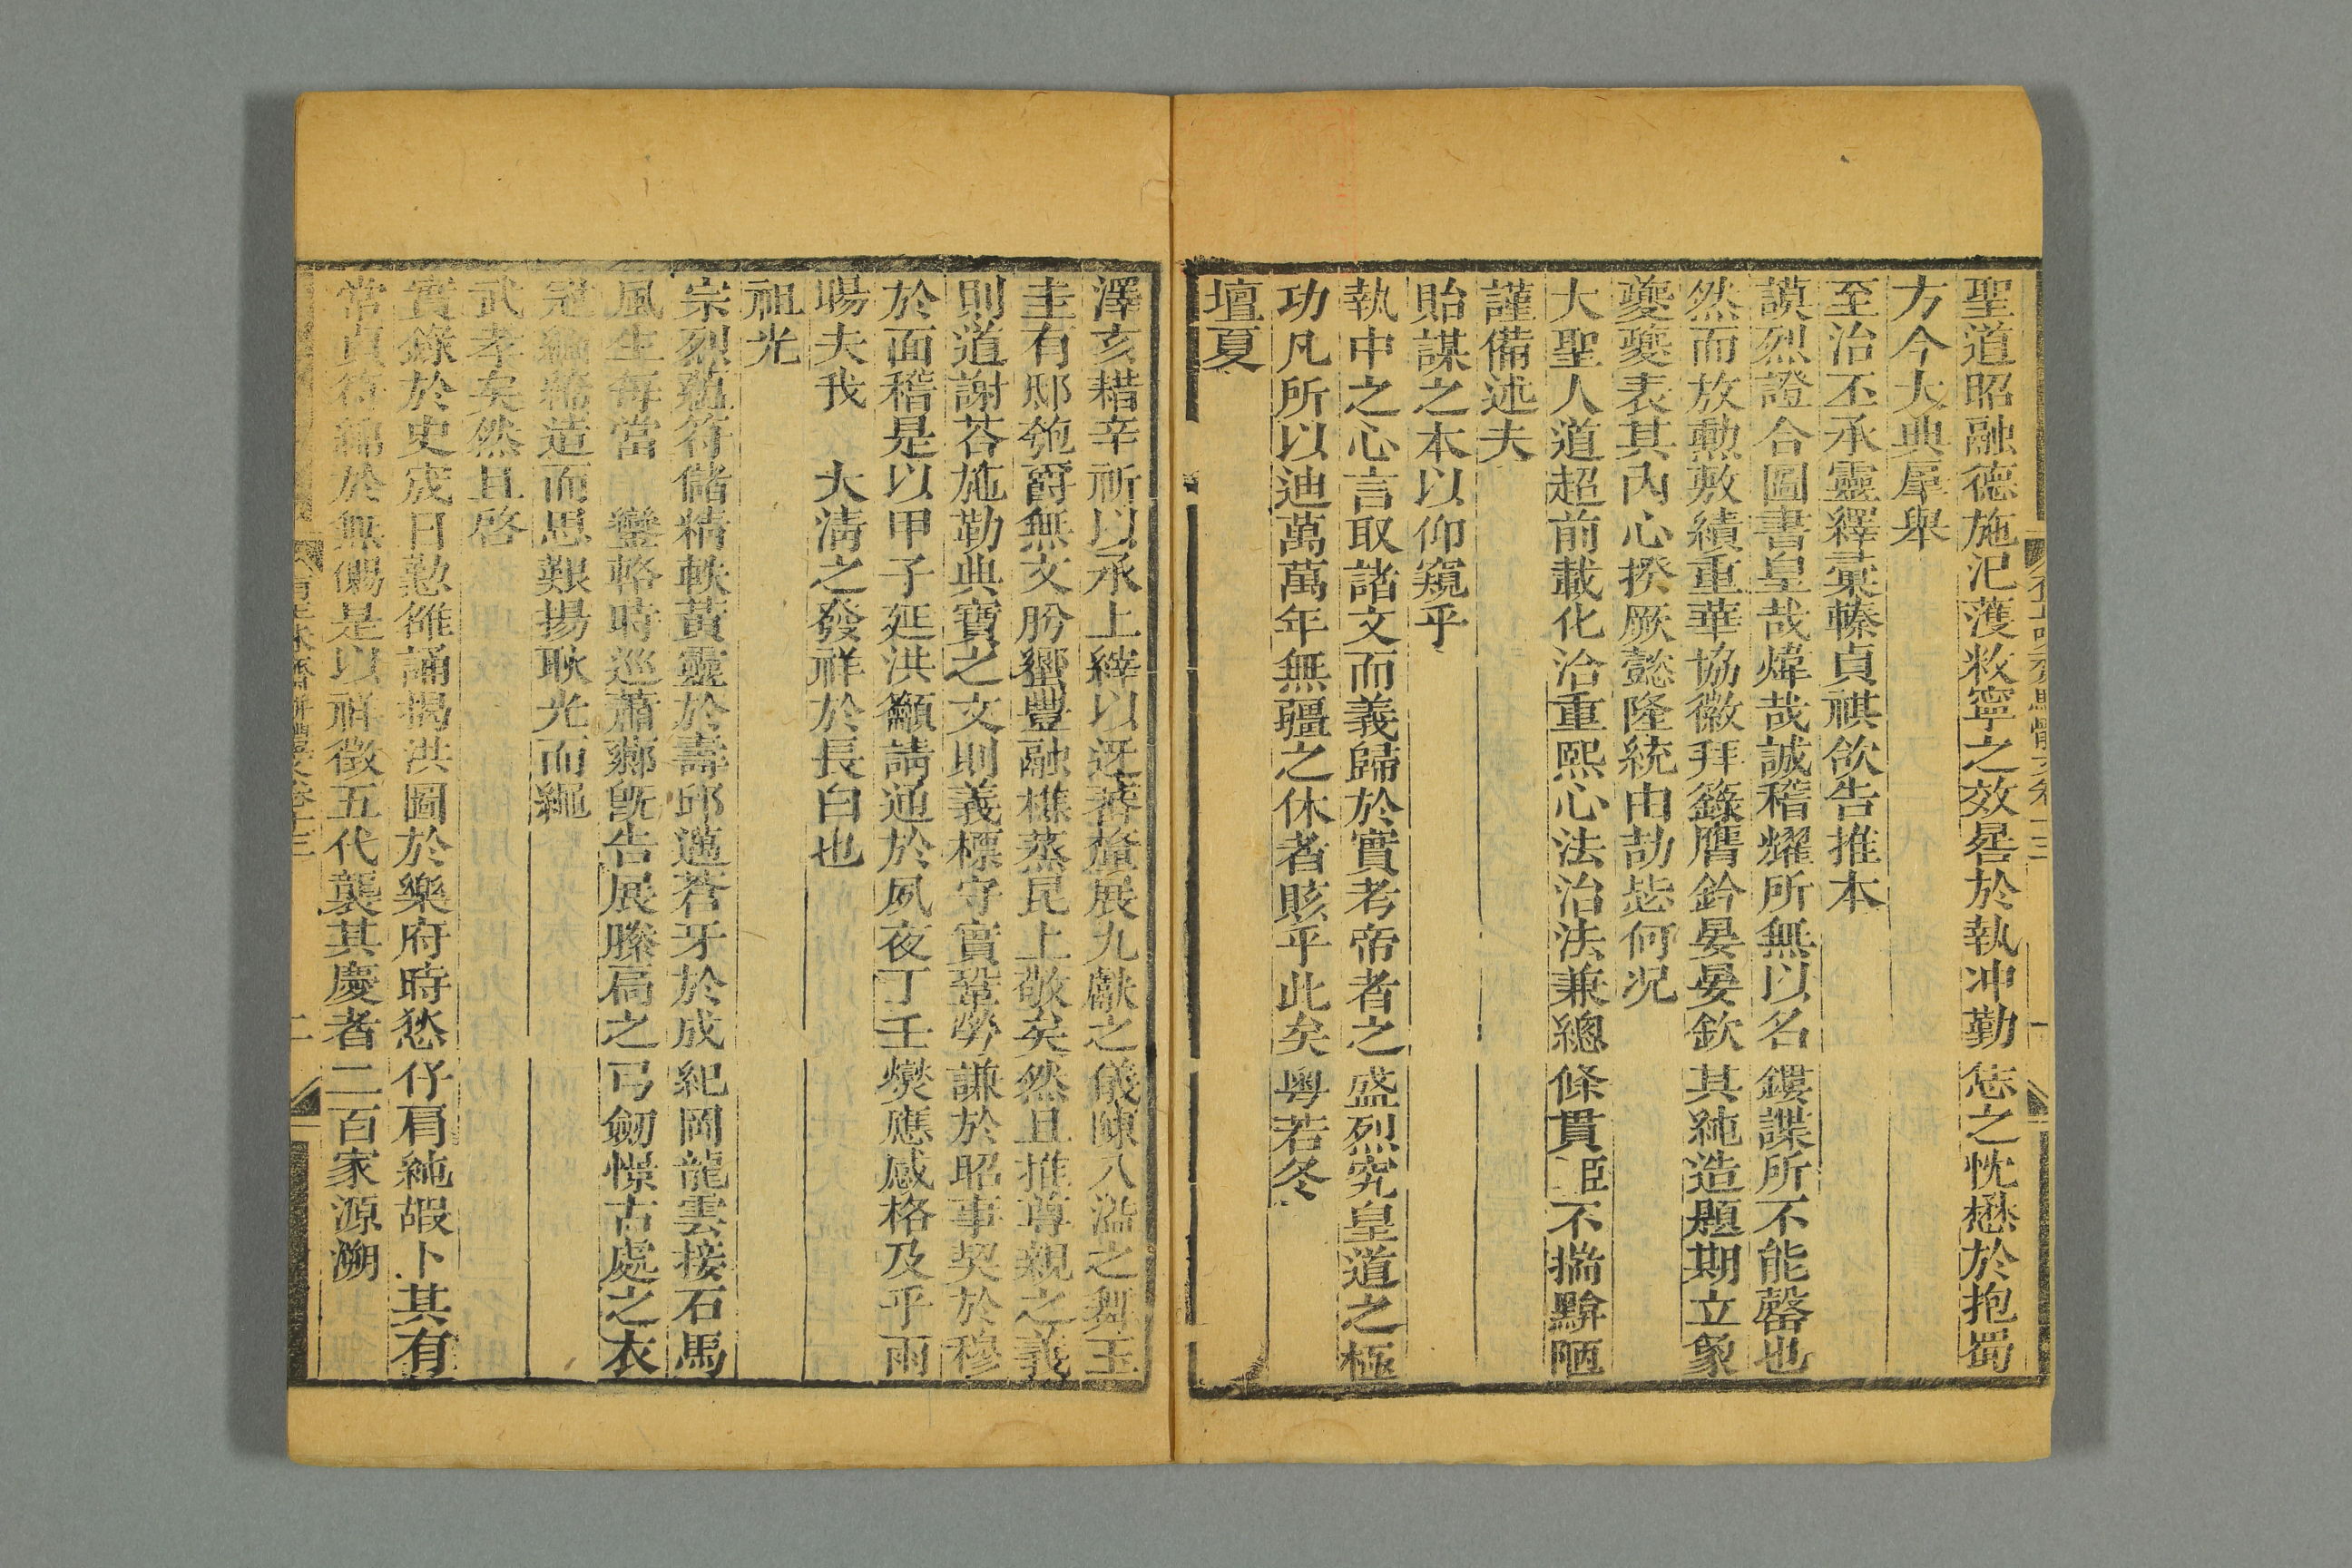 聖道昭融德施汜濩敉寧之效晷於執冲勤恁之忱懋於抱蜀
方今大典犀舉
至治丕承靈繹彚轃貞祺欲告推本
謨烈證合圖書皇哉煒哉誠稽燿所無以名鐶諜所不能罄也
然而放勲敷績重華協徽拜籙膺鈐晏晏欽其純造題期立象
夔夔表其內心揆厥懿隆統由劼毖何况
大聖人道超前載化洽重熙心法治法兼總條貫臣不揣黭陋
謹備述夫
貽謀之本以仰窺乎
執中之心言取諧文而義歸於實考帝者之盛烈究皇道之極
功凡所以迪萬萬年無疆之休者賅乎此矣粵若冬
壇夏
澤亥耤辛祈以承上縡以迓蕃釐展九獻之儀陳八溢之舞玉
圭有邸匏爵無文肸蠁豐融樵蒸民上敬矣然且推尊親之義
則道謝荅施勒典寶之文則義標守實鞏勞謙於昭事契於穆
於面稽是以甲子延洪籲請通於夙夜丁壬爕應感格及乎雨
暘夫我 大淸之發祥於長白也
祖光
宗烈蕴符儲精軼黃靈於壽邱邁蒼牙於成紀岡龍雲接石馬
風生每當 鑾輅時巡蕭薌旣告展縢扃之弓劒憬古處之衣
冠緬締造而思艱揚耿光而繩
武孝矣然且啓
實錄於史宬日懃雒誦揭洪圖於樂府時愗仔肩純嘏卜其有
常貞符緜於無儩是以祥徵五代襲其慶者二百家源溯
有正味齋駢體文卷十三
二